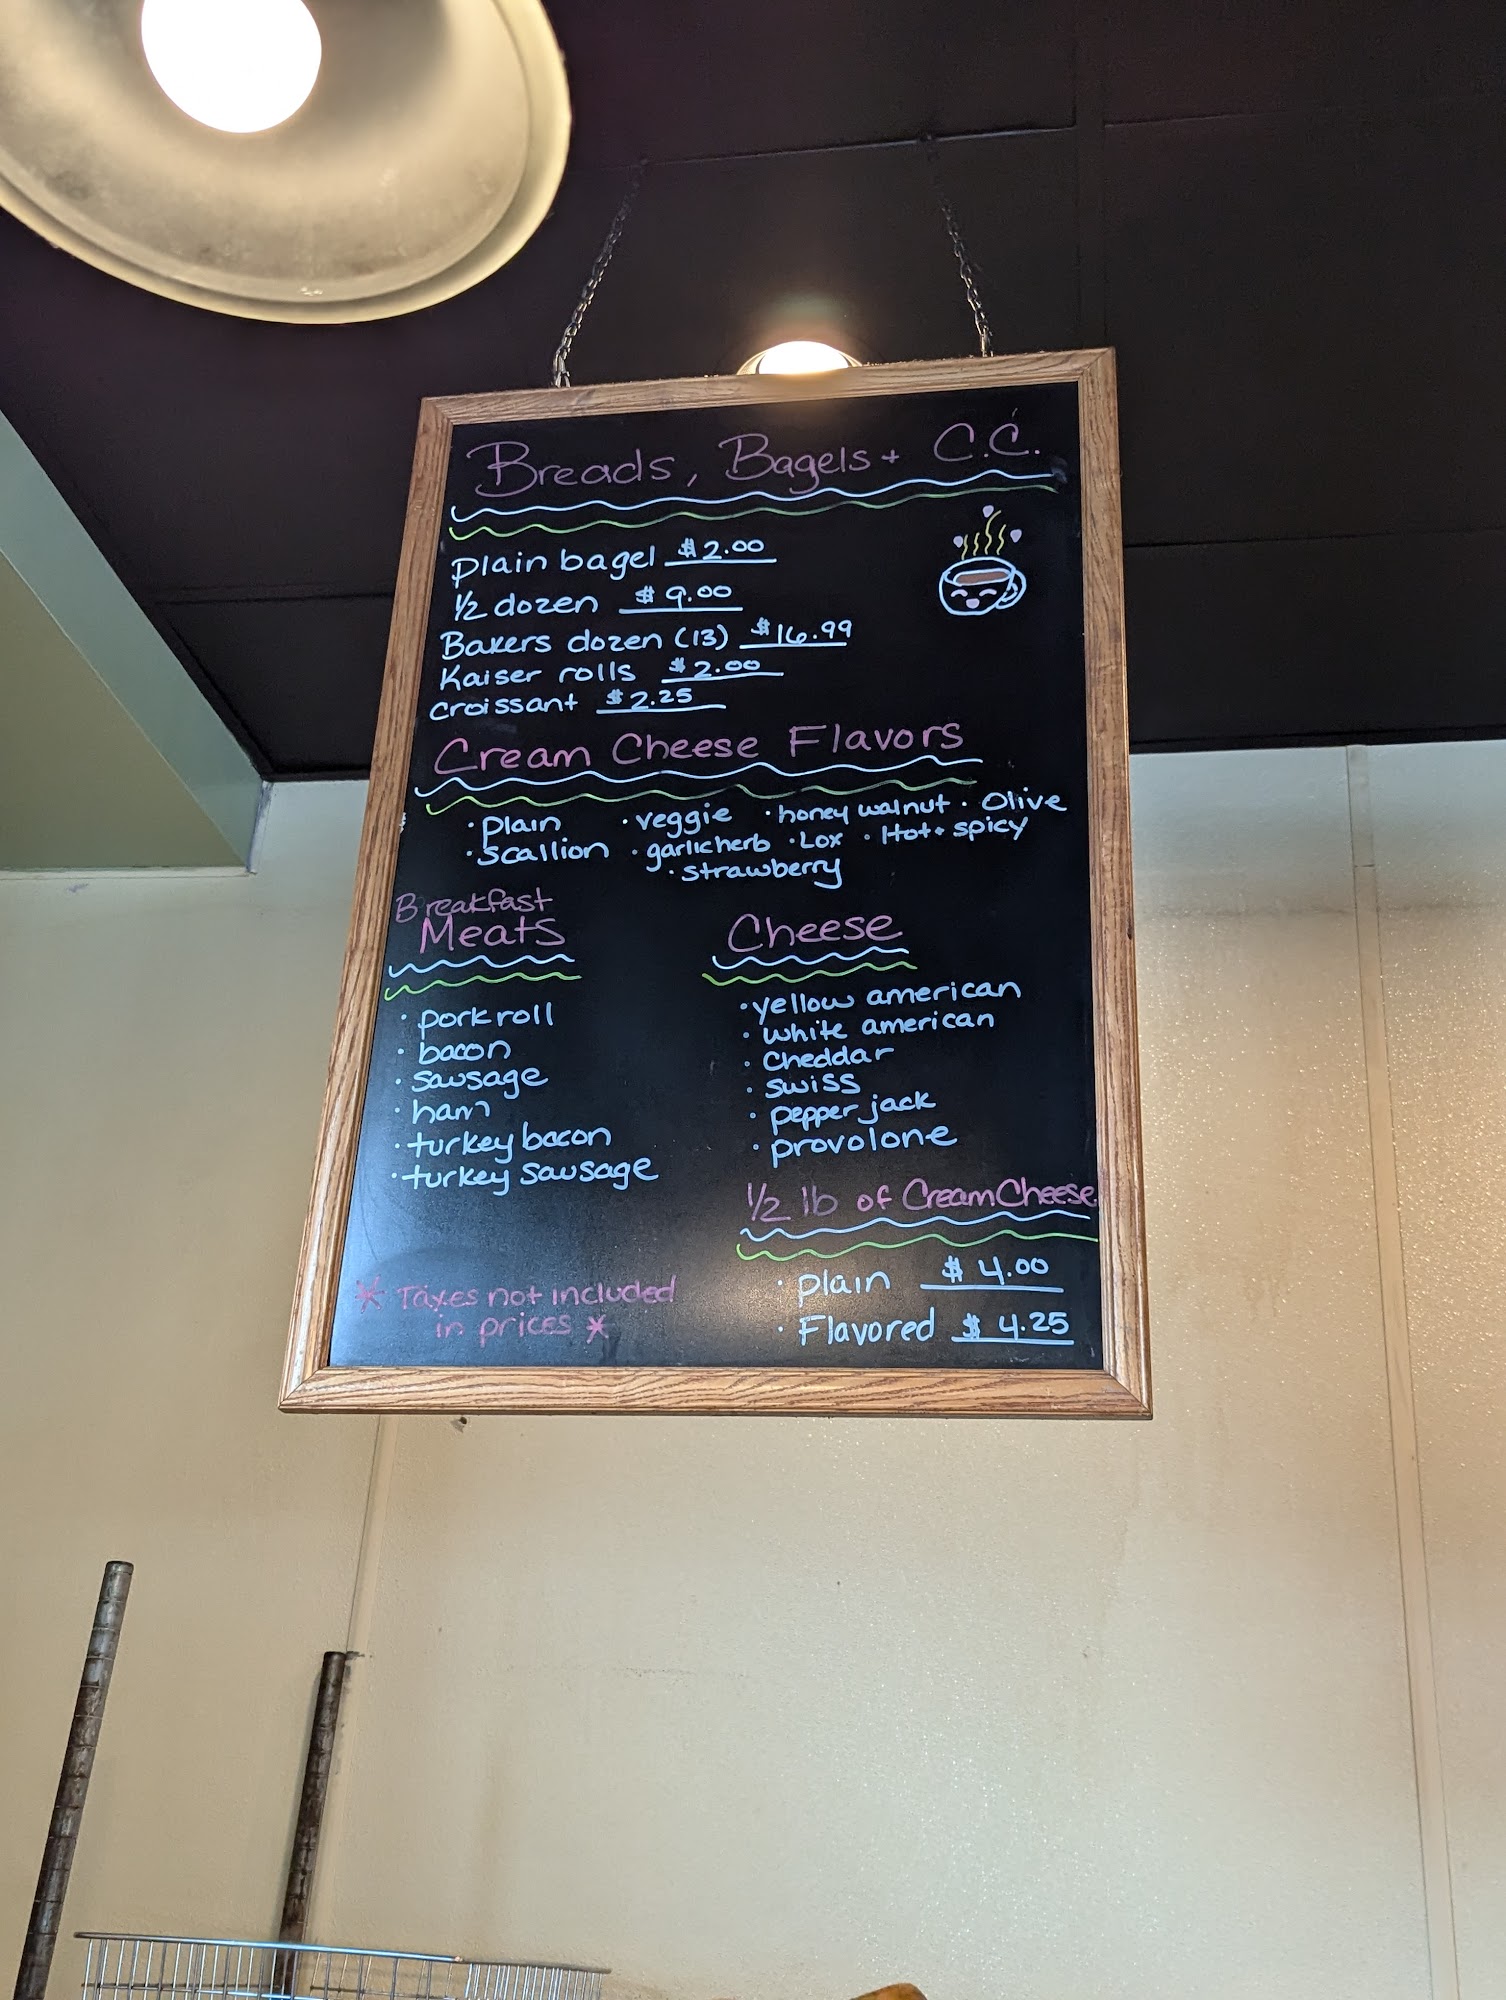 Breads, Bagels + C.C.
Plain bagel $2.00
1/2 dozen $9.00
Bakers dozen (13) $16.99
Kaiser rolls $2.00
croissant $2.25
Cream Cheese Flavors
· Plain · veggie · honey walnut · Olive
· Scallion · garlic herb · Lox · Hot + spicy
· strawberry
Breakfast
Meats
· pork roll
· bacon
· sausage
· ham
· turkey bacon
· turkey sausage
Cheese
· yellow american
· white american
· Cheddar
· swiss
· pepper jack
· provolone
1/2 lb of Cream Cheese
· plain $4.00
· Flavored $4.25
* Taxes not included
in prices *